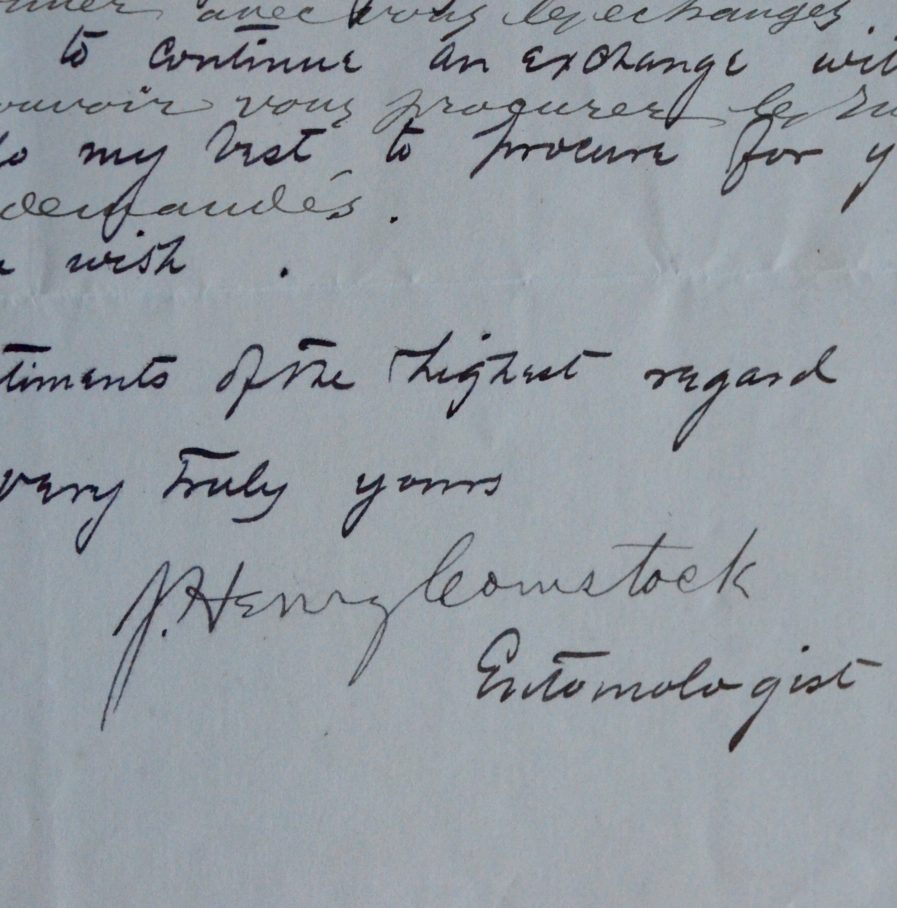 avec vous les echanges
to continue an exchange wit
ouvoir vous procurer les
do my best to procure for y
demandés.
wish .
timents of the highest regard
very truly yours
J. Henry Comstock
Entomologist